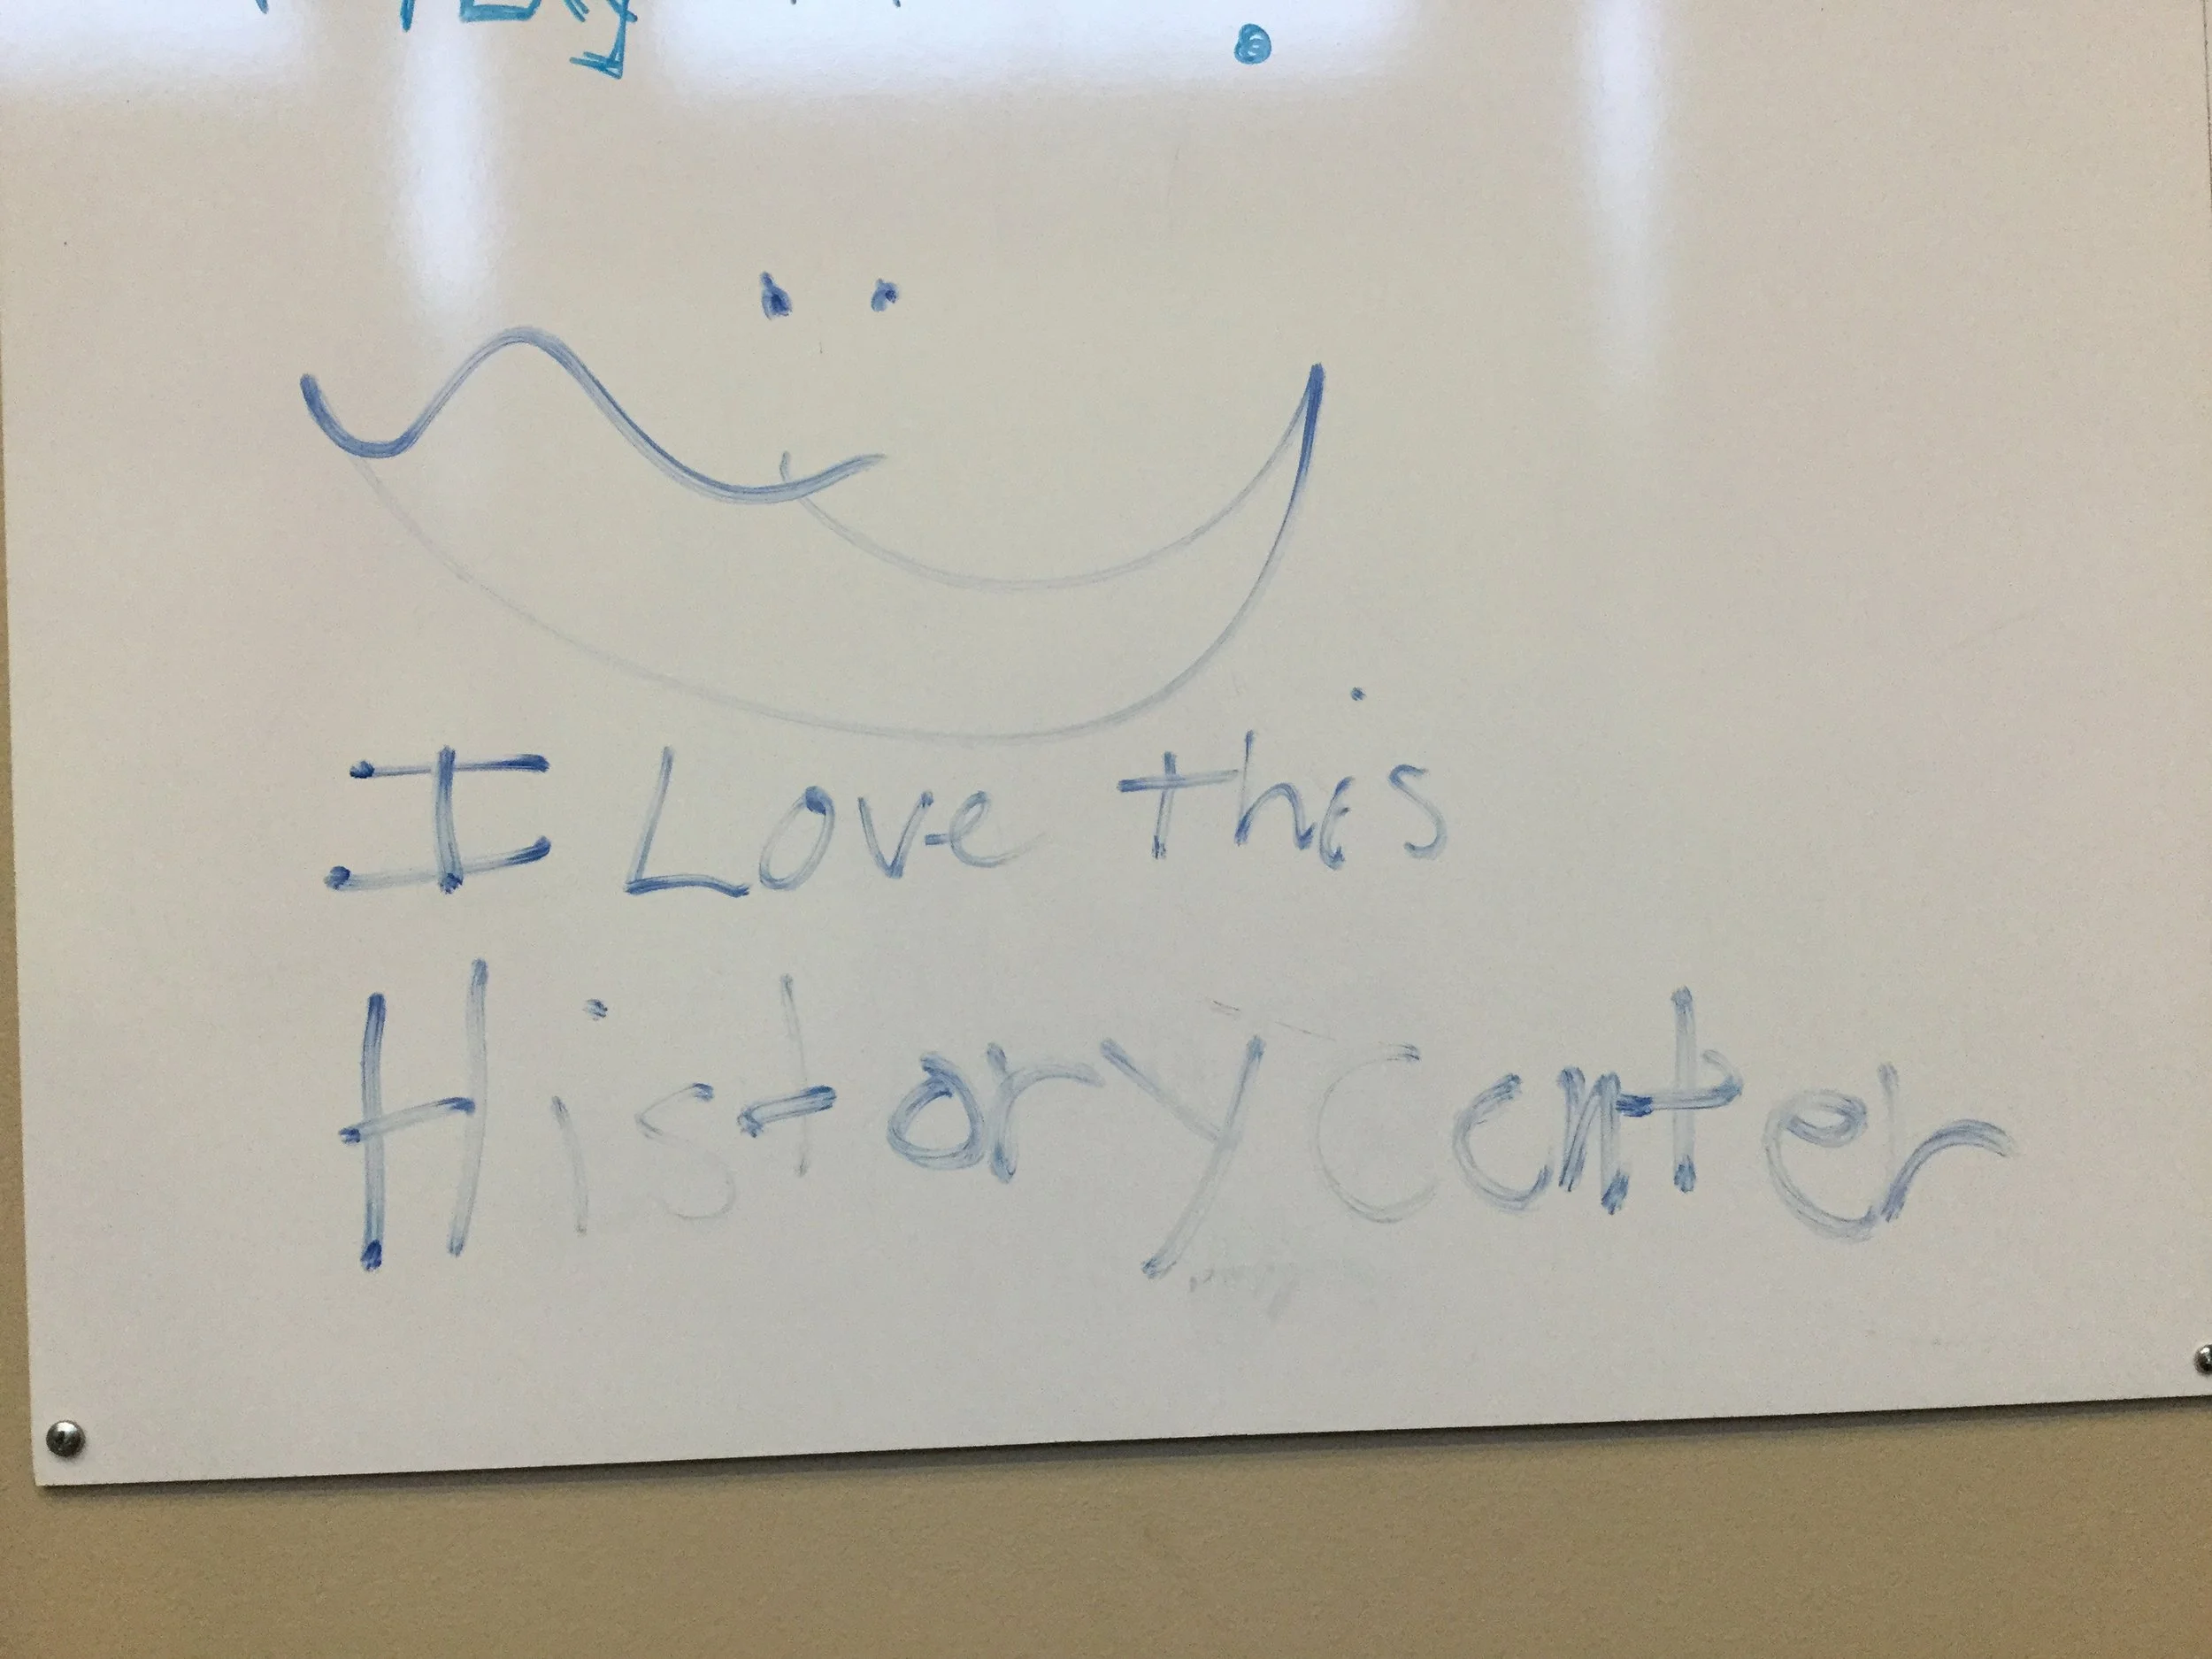 I Love this
History Center